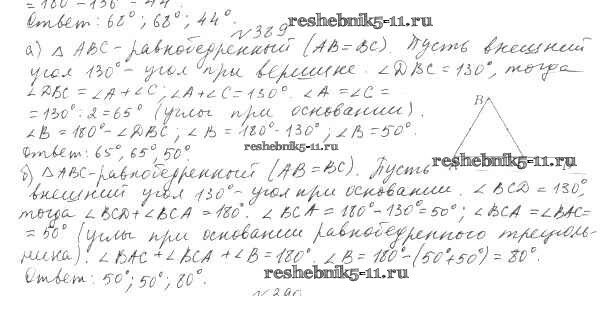 = 180° - 136° = 44°.
Ответ: 68°; 68°; 44°.
reshebnik5-11.ru
№389
а) △ ABC - равнобедренный (AB = BC). Пусть внешний
угол 130° - угол при вершине. ∠DBC = 130°, тогда
∠DBC = ∠A + ∠C; ∠A + ∠C = 130°. ∠A = ∠C =
= 130° : 2 = 65° (углы при основании).
∠B = 180° - ∠DBC; ∠B = 180° - 130°; ∠B = 50°.
B
Ответ: 65°, 65°, 50°.
reshebnik5-11.ru
reshebnik5-11.ru
б) △ ABC - равнобедренный (AB = BC). Пусть
внешний угол 130° - угол при основании. ∠BCD = 130°,
тогда ∠BCD + ∠BCA = 180°. ∠BCA = 180° - 130° = 50°; ∠BCA = ∠BAC =
= 50° (углы при основании равнобедренного треуголь-
ника). ∠BAC + ∠BCA + ∠B = 180°. ∠B = 180° - (50° + 50°) = 80°.
Ответ: 50°; 50°; 80°.
reshebnik5-11.ru